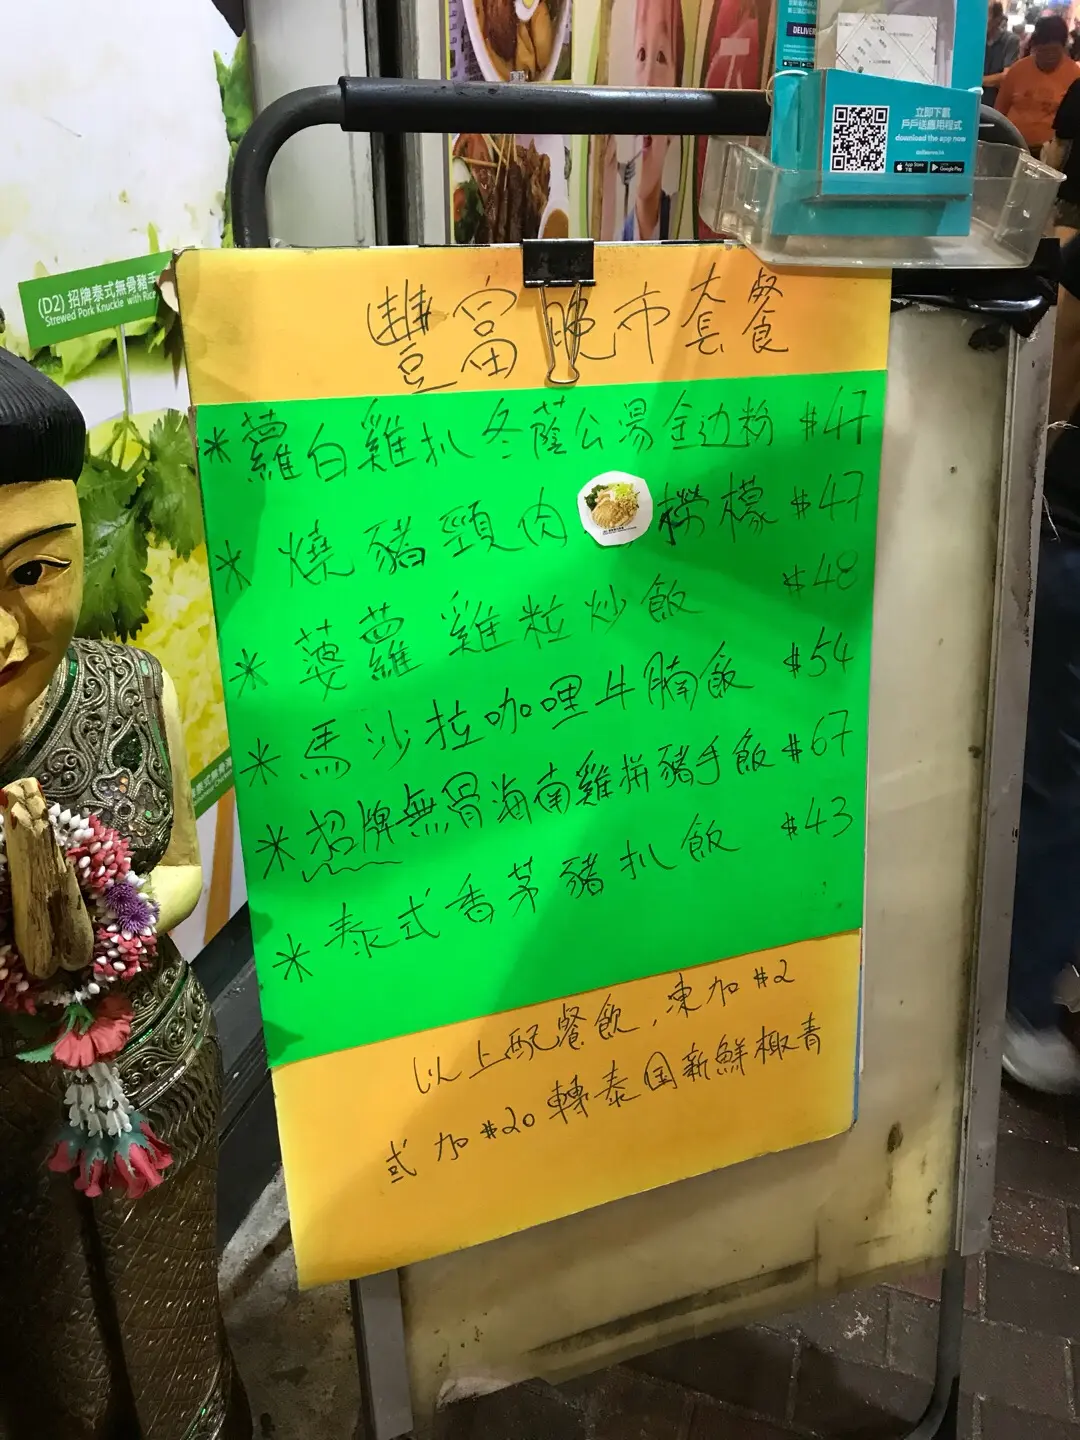 DELIVER
立即下載
戶戶送應用程式
download the app now
App Store
Google Play
(D2) 招牌泰式無骨豬手
Strewed Pork Knuckle with Rice
豐富晚市套餐
*蘿白雞扒冬蔭公湯金边粉 $47
*燒豬頸肉撈檬 $47
*菠蘿雞粒炒飯 $48
*馬沙拉咖哩牛腩飯 $54
*招牌無骨海南雞拼豬手飯 $67
*泰式香茅豬扒飯 $43
以上配餐飲,凍加 $2
或加 $20 轉泰国新鮮椰青